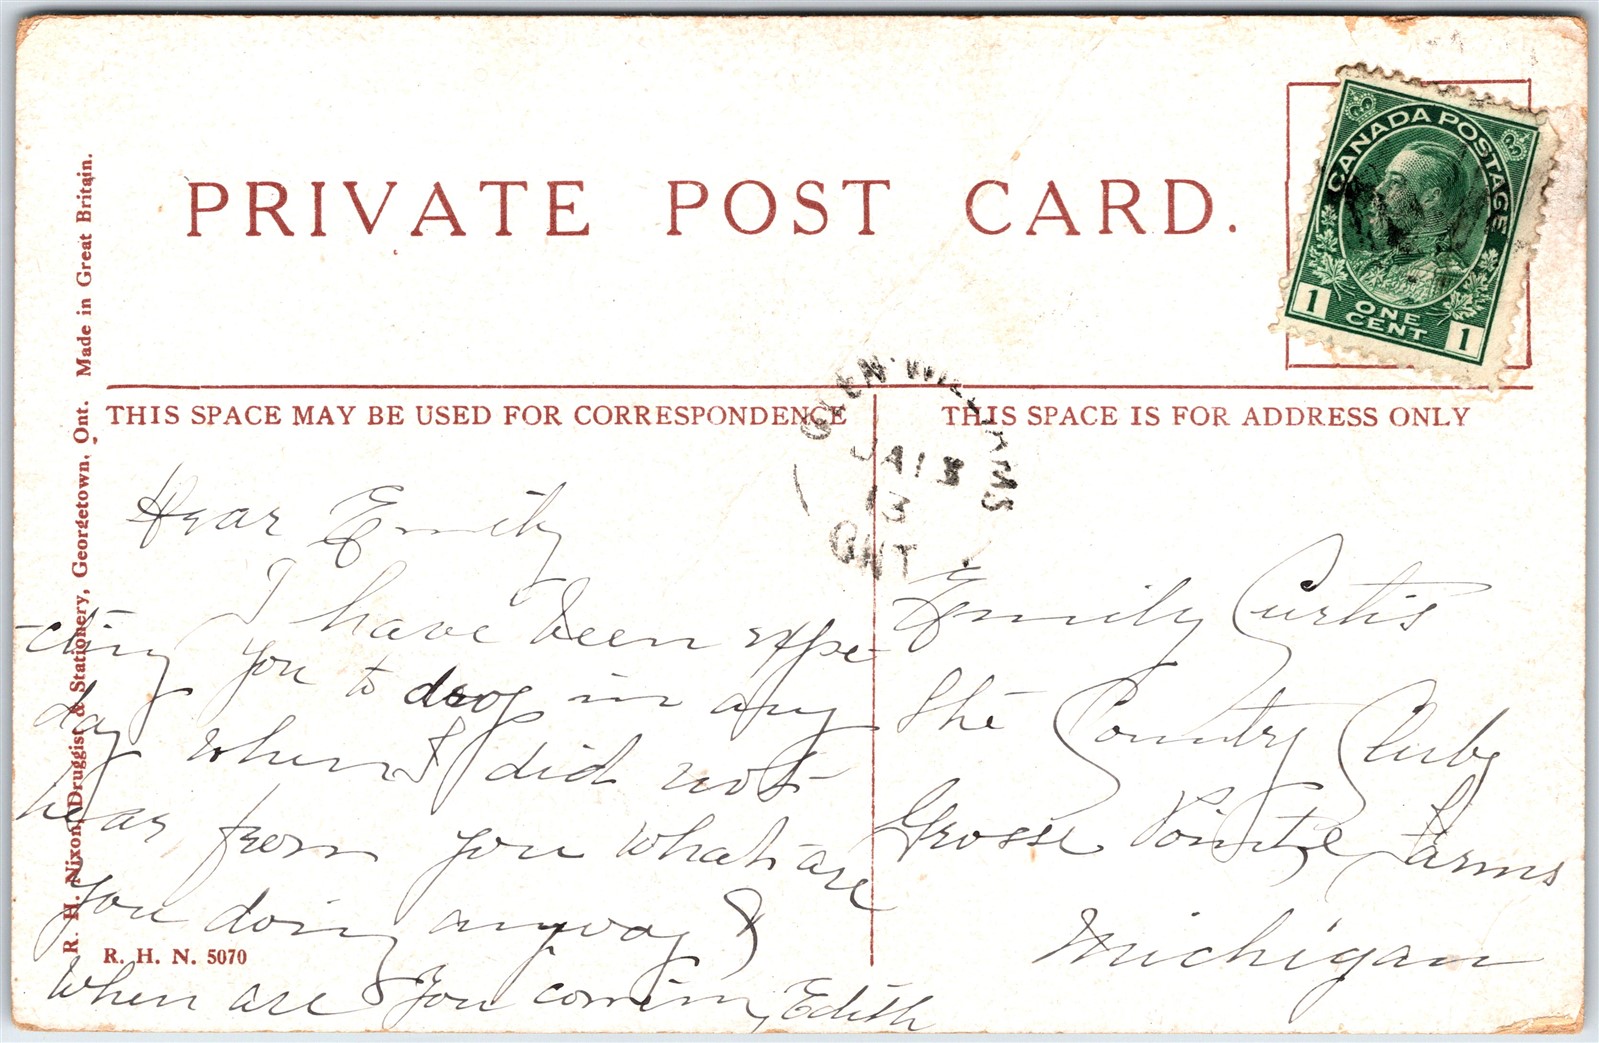 PRIVATE POST CARD.
CANADA POSTAGE
1 ONE CENT 1
THIS SPACE MAY BE USED FOR CORRESPONDENCE
THIS SPACE IS FOR ADDRESS ONLY
GLEN WILLIAMS
JA 13
13
ONT
R. H. Nixon, Druggist & Stationery, Georgetown, Ont. Made in Great Britain.
Dear Emily
I have been expe-
-cting you to drop in any
day when I did not
hear from you What are
you doing anyway?
When are you coming, Edith
R. H. N. 5070
Emily Curtis
The Country Club
Grosse Pointe Farms
Michigan